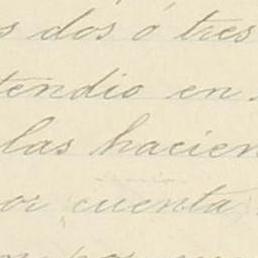 s dos ó tres
tendio en
las hacien
or cuenta